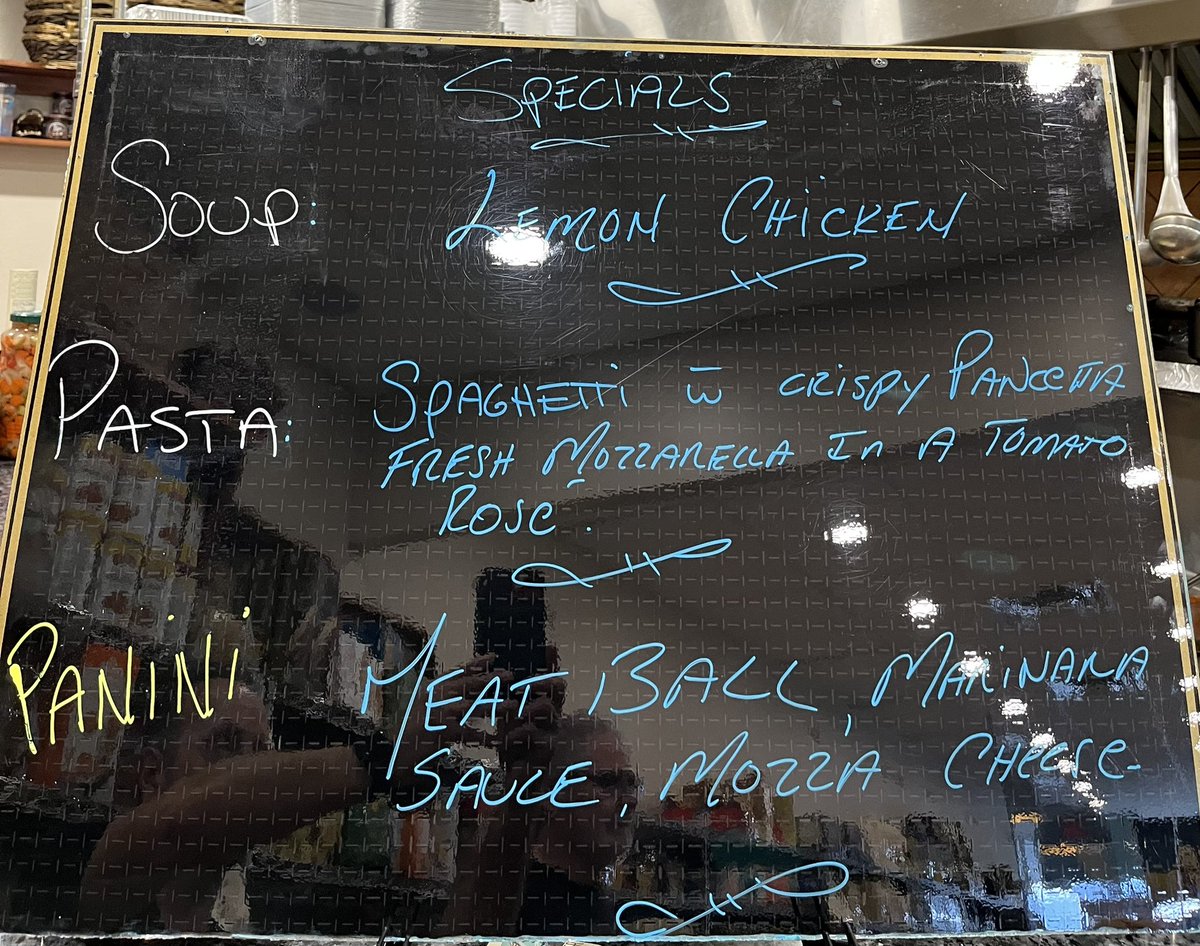 SPECIALS
SOUP: LEMON CHICKEN
PASTA: SPAGHETTI w̄ CRISPY PANCETTA
FRESH MOZZARELLA IN A TOMATO
ROSE.
PANINI MEAT BALL, MARINARA
SAUCE, MOZZA CHEESE